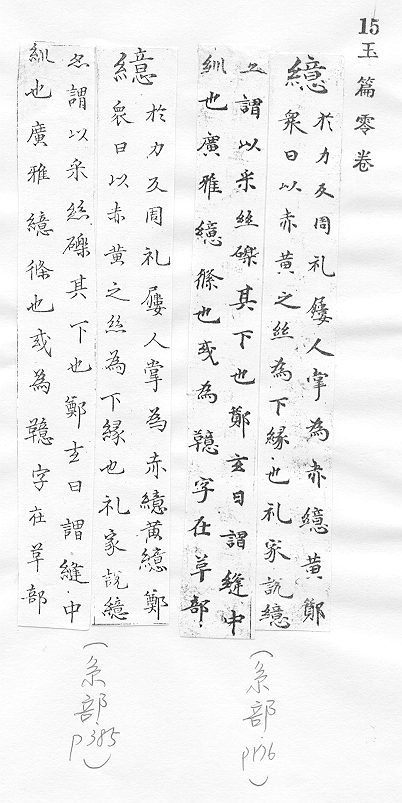 15玉篇零卷
繶
於力反周礼屨人掌為赤繶黄鄭
衆曰以赤黄之絲為下緣也礼家説繶
謂以采絲礫其下也鄭玄曰謂縫中
紃也廣雅繶絛也或為字在草部
(糸部p176)
繶
於力反周礼屨人掌為赤繶黄繶鄭
衆曰以赤黄之絲為下緣也礼家説繶
亦謂以采絲礫其下也鄭玄曰謂縫中
紃也廣雅繶絛也或為字在草部
(糸部p385)